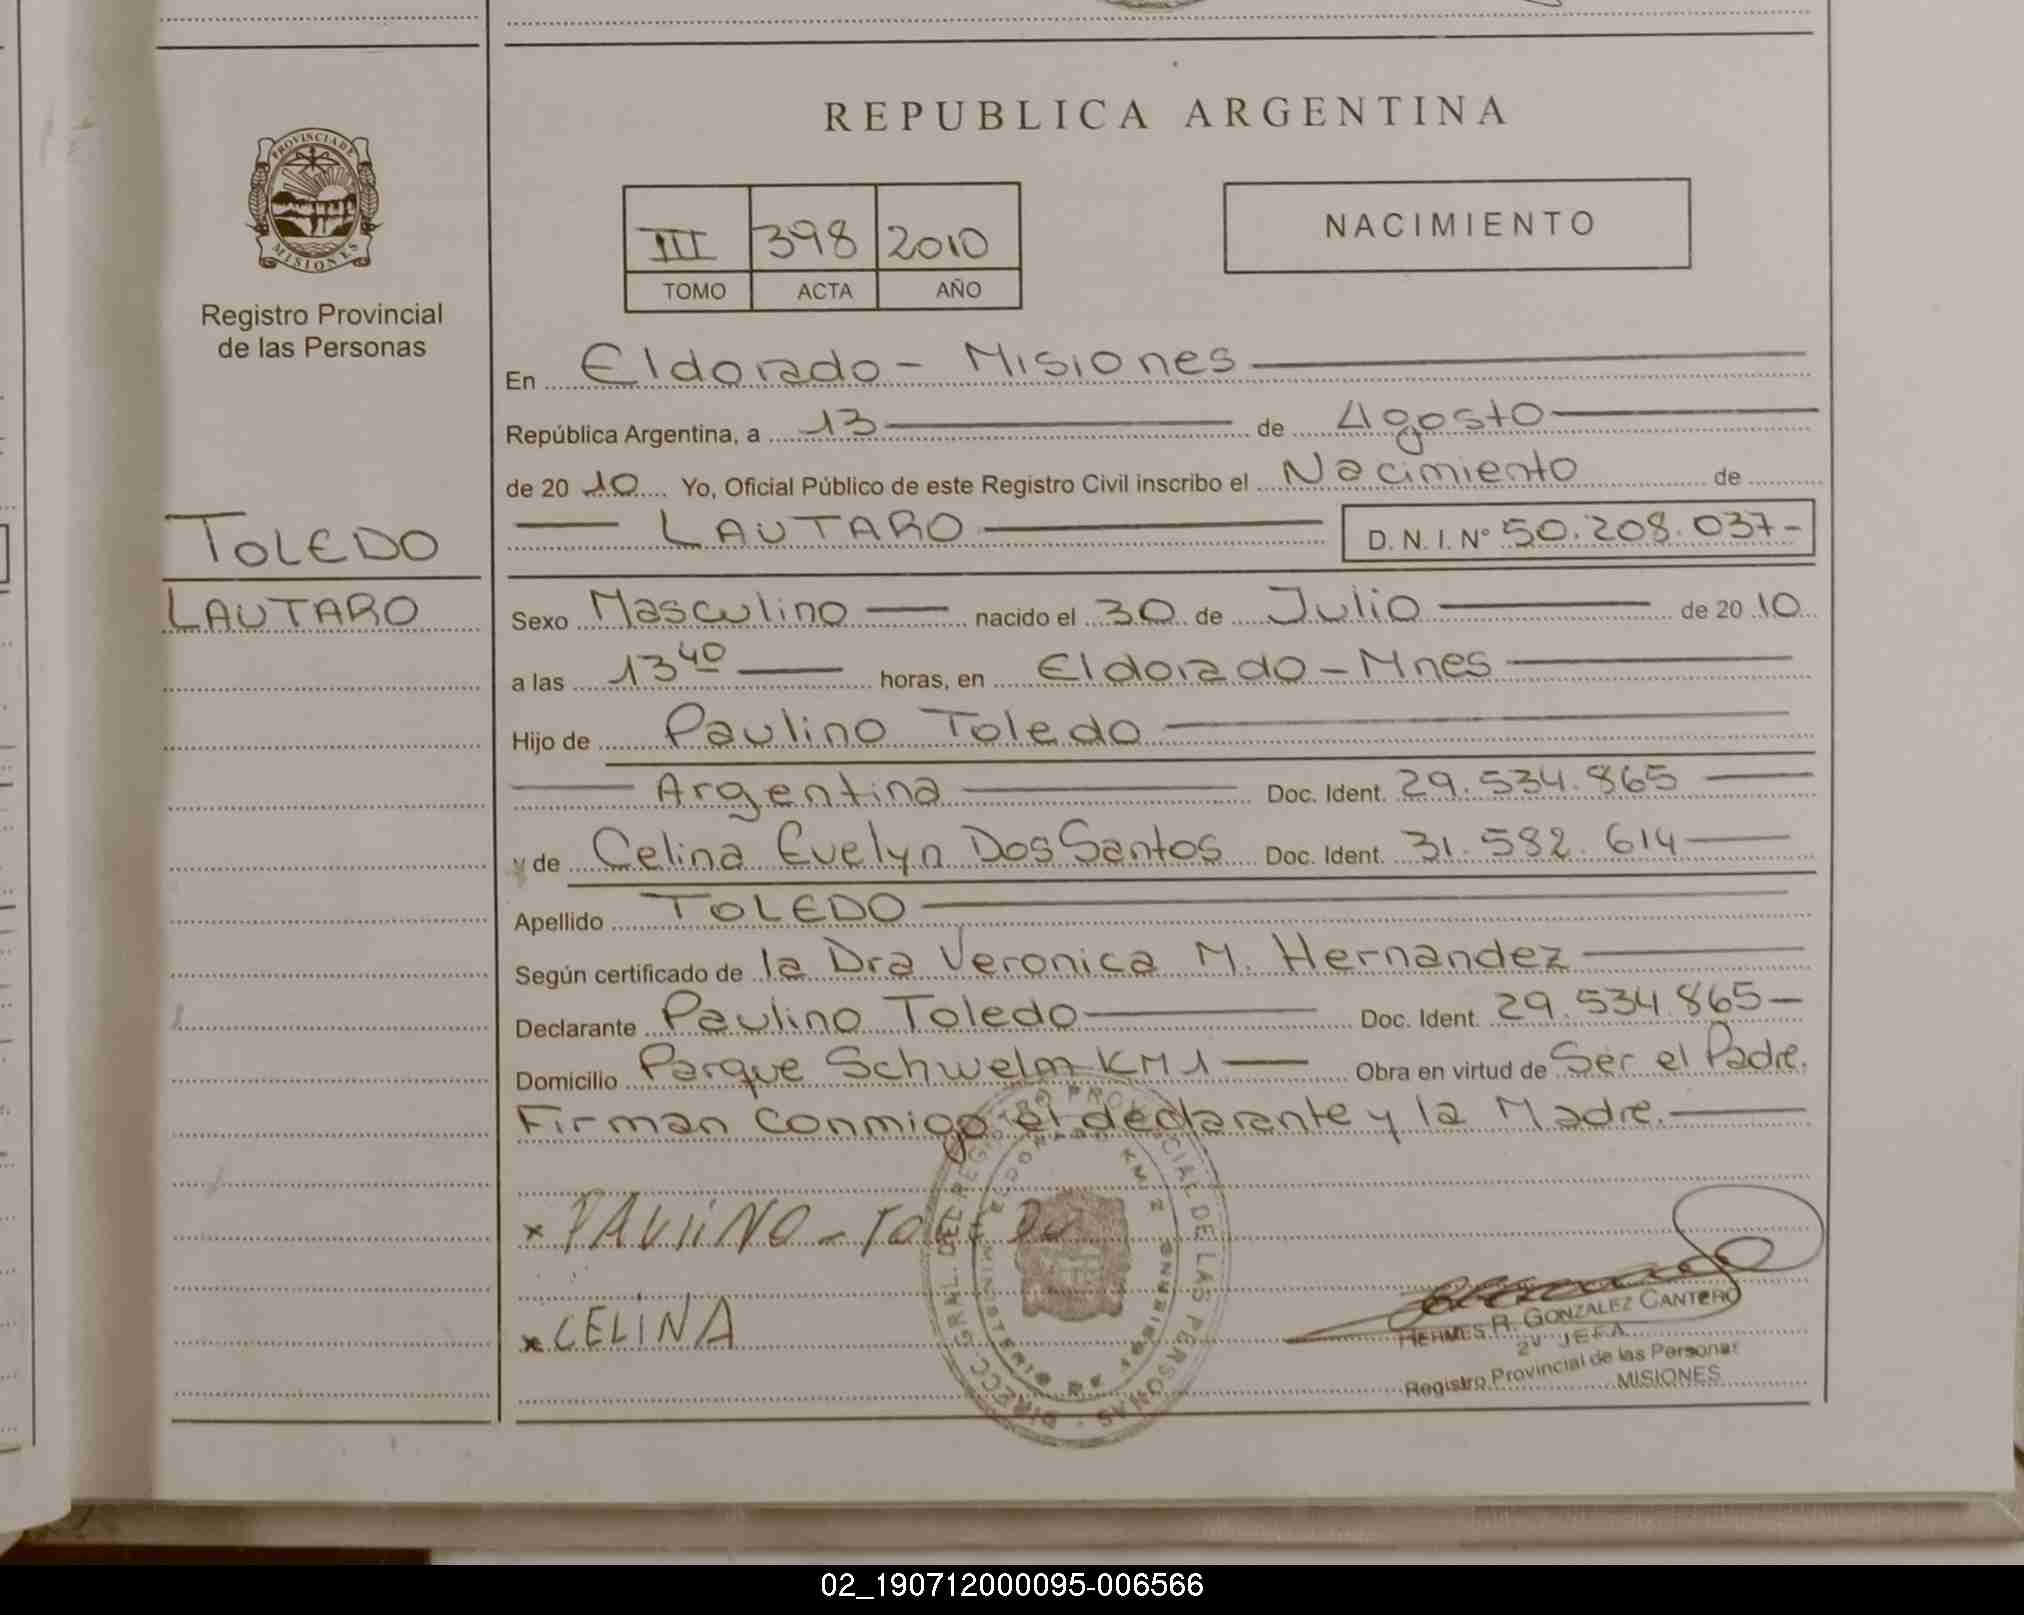 REPUBLICA ARGENTINA
PROVINCIA DE
MISIONES
Registro Provincial
de las Personas
III 398 2010
TOMO ACTA AÑO
NACIMIENTO
En Eldorado - Misiones
República Argentina, a 13 de Agosto
de 20 10 Yo, Oficial Público de este Registro Civil inscribo el Nacimiento de
TOLEDO
LAUTARO
LAUTARO D.N.I. Nº 50.208.037-
Sexo Masculino nacido el 30 de Julio de 20 10
a las 13 40 horas, en Eldorado - Mnes
Hijo de Paulino Toledo
Argentina Doc. Ident. 29.534.865
y de Celina Evelyn Dos Santos Doc. Ident. 31.582.614
Apellido TOLEDO
Según certificado de la Dra Veronica M. Hernandez
Declarante Paulino Toledo Doc. Ident. 29.534.865-
Domicilio Parque Schwelm KM 1 Obra en virtud de Ser el Padre.
Firman conmigo el declarante y la Madre.
x PAULINO - TOLEDO
x CELINA
DIRECC. GRAL. DEL REGISTRO PROVINCIAL DE LAS PERSONAS
ELDORADO KM 2
HERMES R. GONZALEZ CANTERO
2º JEFA
Registro Provincial de las Personas
MISIONES
02_190712000095-006566